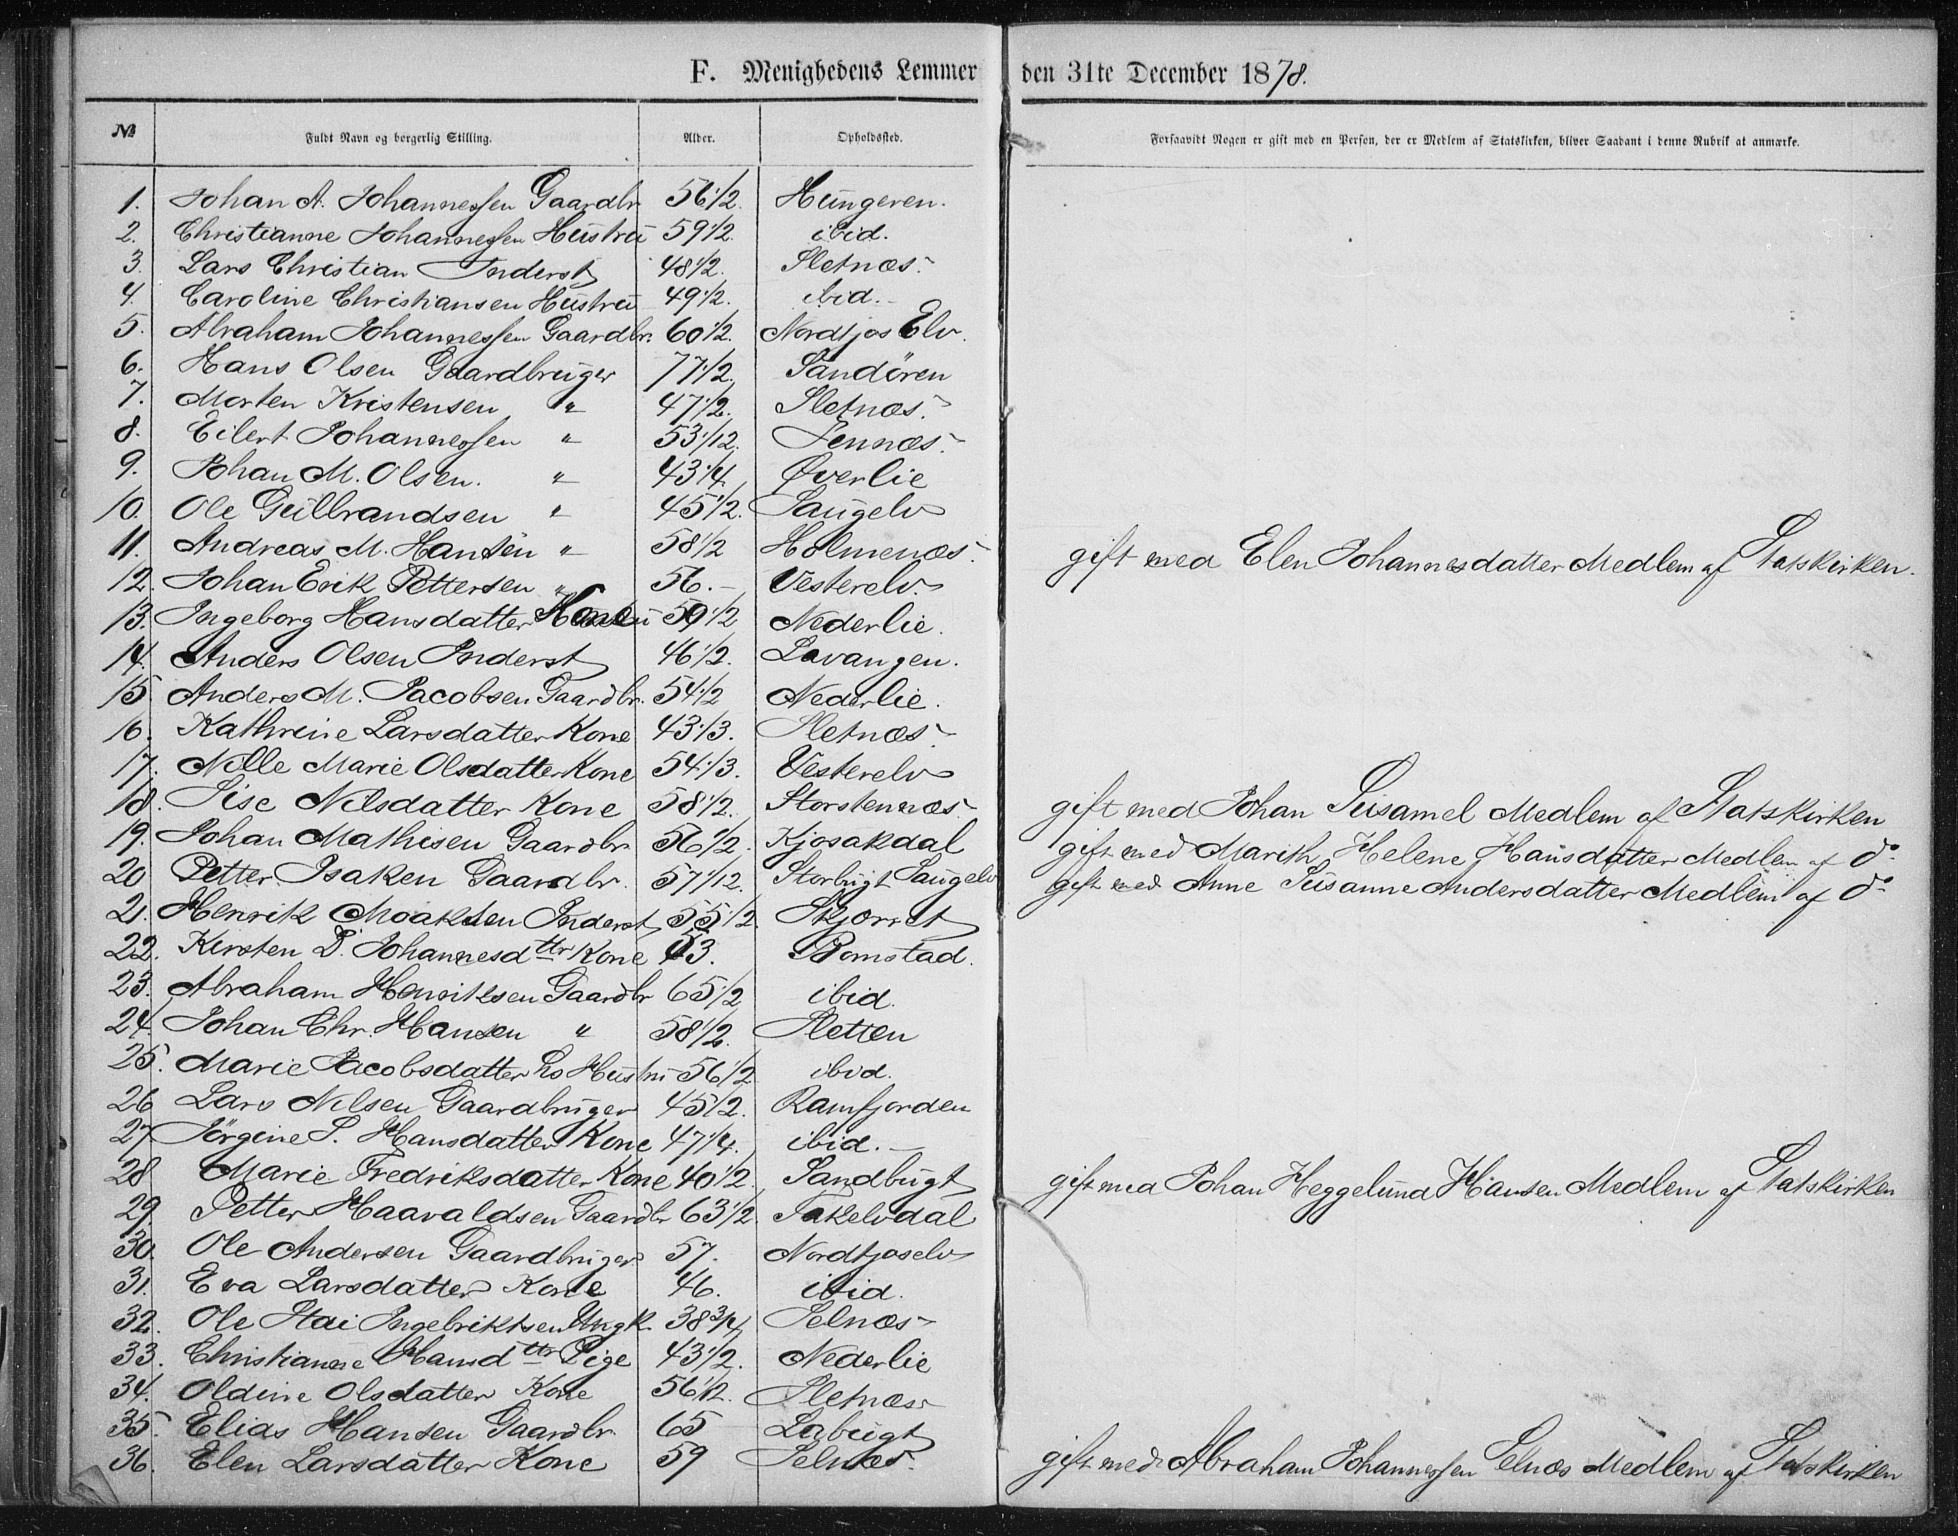 F. Menighedens Lemmer den 31te December 1878.
№ Fuldt Navn og borgerlig Stilling. Alder. Opholdssted. Forsaavidt Nogen er gift med en Person, der er Medlem af Statskirken, bliver Saadant i denne Rubrik at anmærke.
1. Johan A. Johannessen Gaardbr 56 1/2. Hungeren.
2. Christianne Johannessen Hustru 59 1/2. ibid.
3. Lars Christian Inderst 48 1/2. Sletnæs.
4. Caroline Christiansen Hustru 49 1/2. ibid.
5. Abraham Johannessen Gaardbr. 60 1/2. Nordfjos Elv.
6. Hans Olsen Gaardbruger 77 1/2. Sandören
7. Morten Kristensen " 47 1/2. Sletnæs.
8. Eilert Johannessen " 53 1/12. Jennæs.
9. Johan M. Olsen. " 43 1/4. Øverlie
10. Ole Gulbrandsen " 45 1/2. Laugelv
11. Andreas M. Hansen " 58 1/2 Holmenæs. gift med Elen Johannesdatter Medlem af Statskirken.
12. Johan Erik Pettersen " 56. Vesterelv.
13. Ingeborg Hansdatter Kone 59 1/2 Nederlie.
14. Anders Olsen Inderst 46 1/2. Lavangen.
15. Anders M. Jacobsen Gaardbr. 54 1/2 Nederlie.
16. Kathrine Larsdatter Kone 43 1/3. Sletnæs.
17. Nille Marie Olsdatter Kone 54 1/3. Vesterelv
18. Sise Nilsdatter Kone 58 1/2. Storstennæs. gift med Johan Susamel Medlem af Statskirken
19. Johan Mathisen Gaardbr 56 1/2. Kjosakdal gift med Marith Helene Hansdatter Medlem af do
20 Petter Isaken Gaardbr. 57 1/12. Storbugt Laugelv gift med Anne Susanne Andersdatter Medlem af do
21. Henrik Moaksen Inderst 55 1/2. Skjorret
22. Kirsten D. Johannesdttr Kone 53. Bomstad.
23. Abraham Henriksen Gaardbr 65 1/2 ibid.
24. Johan Chr. Hansen " 58 1/2. Sletten
25. Marie Jacobsdatter hs Hustru 56 1/2 ibid.
26 Lars Nilsen Gaardbruger 45 1/2. Ramfjorden
27 Jörgine S. Hansdatter Kone 47 1/4. ibid.
28 Marie Fredriksdatter Kone 40 1/2. Sandbugt gift med Johan Heggelund Hansen Medlem af Statskirken
29. Petter Haavaldsen Gaardbr 63 1/2. Takelvdal
30. Ole Andersen Gaardbruger 57. Nordfjoselv
31. Eva Larsdatter Kone 46. ibid.
32. Ole Stai Ingebriktsen Ungk. 38 3/4 Selnæs
33. Christianne Hansdttr Pige 43 1/2. Nederlie
34. Oldine Olsdatter Kone 56 1/2. Sletnæs
35. Elias Hansen Gaardbr. 65 Labugt
36. Elen Larsdatter Kone 59 Selnæs. gift med Abraham Johannessen Selnæs Medlem af Statskirken